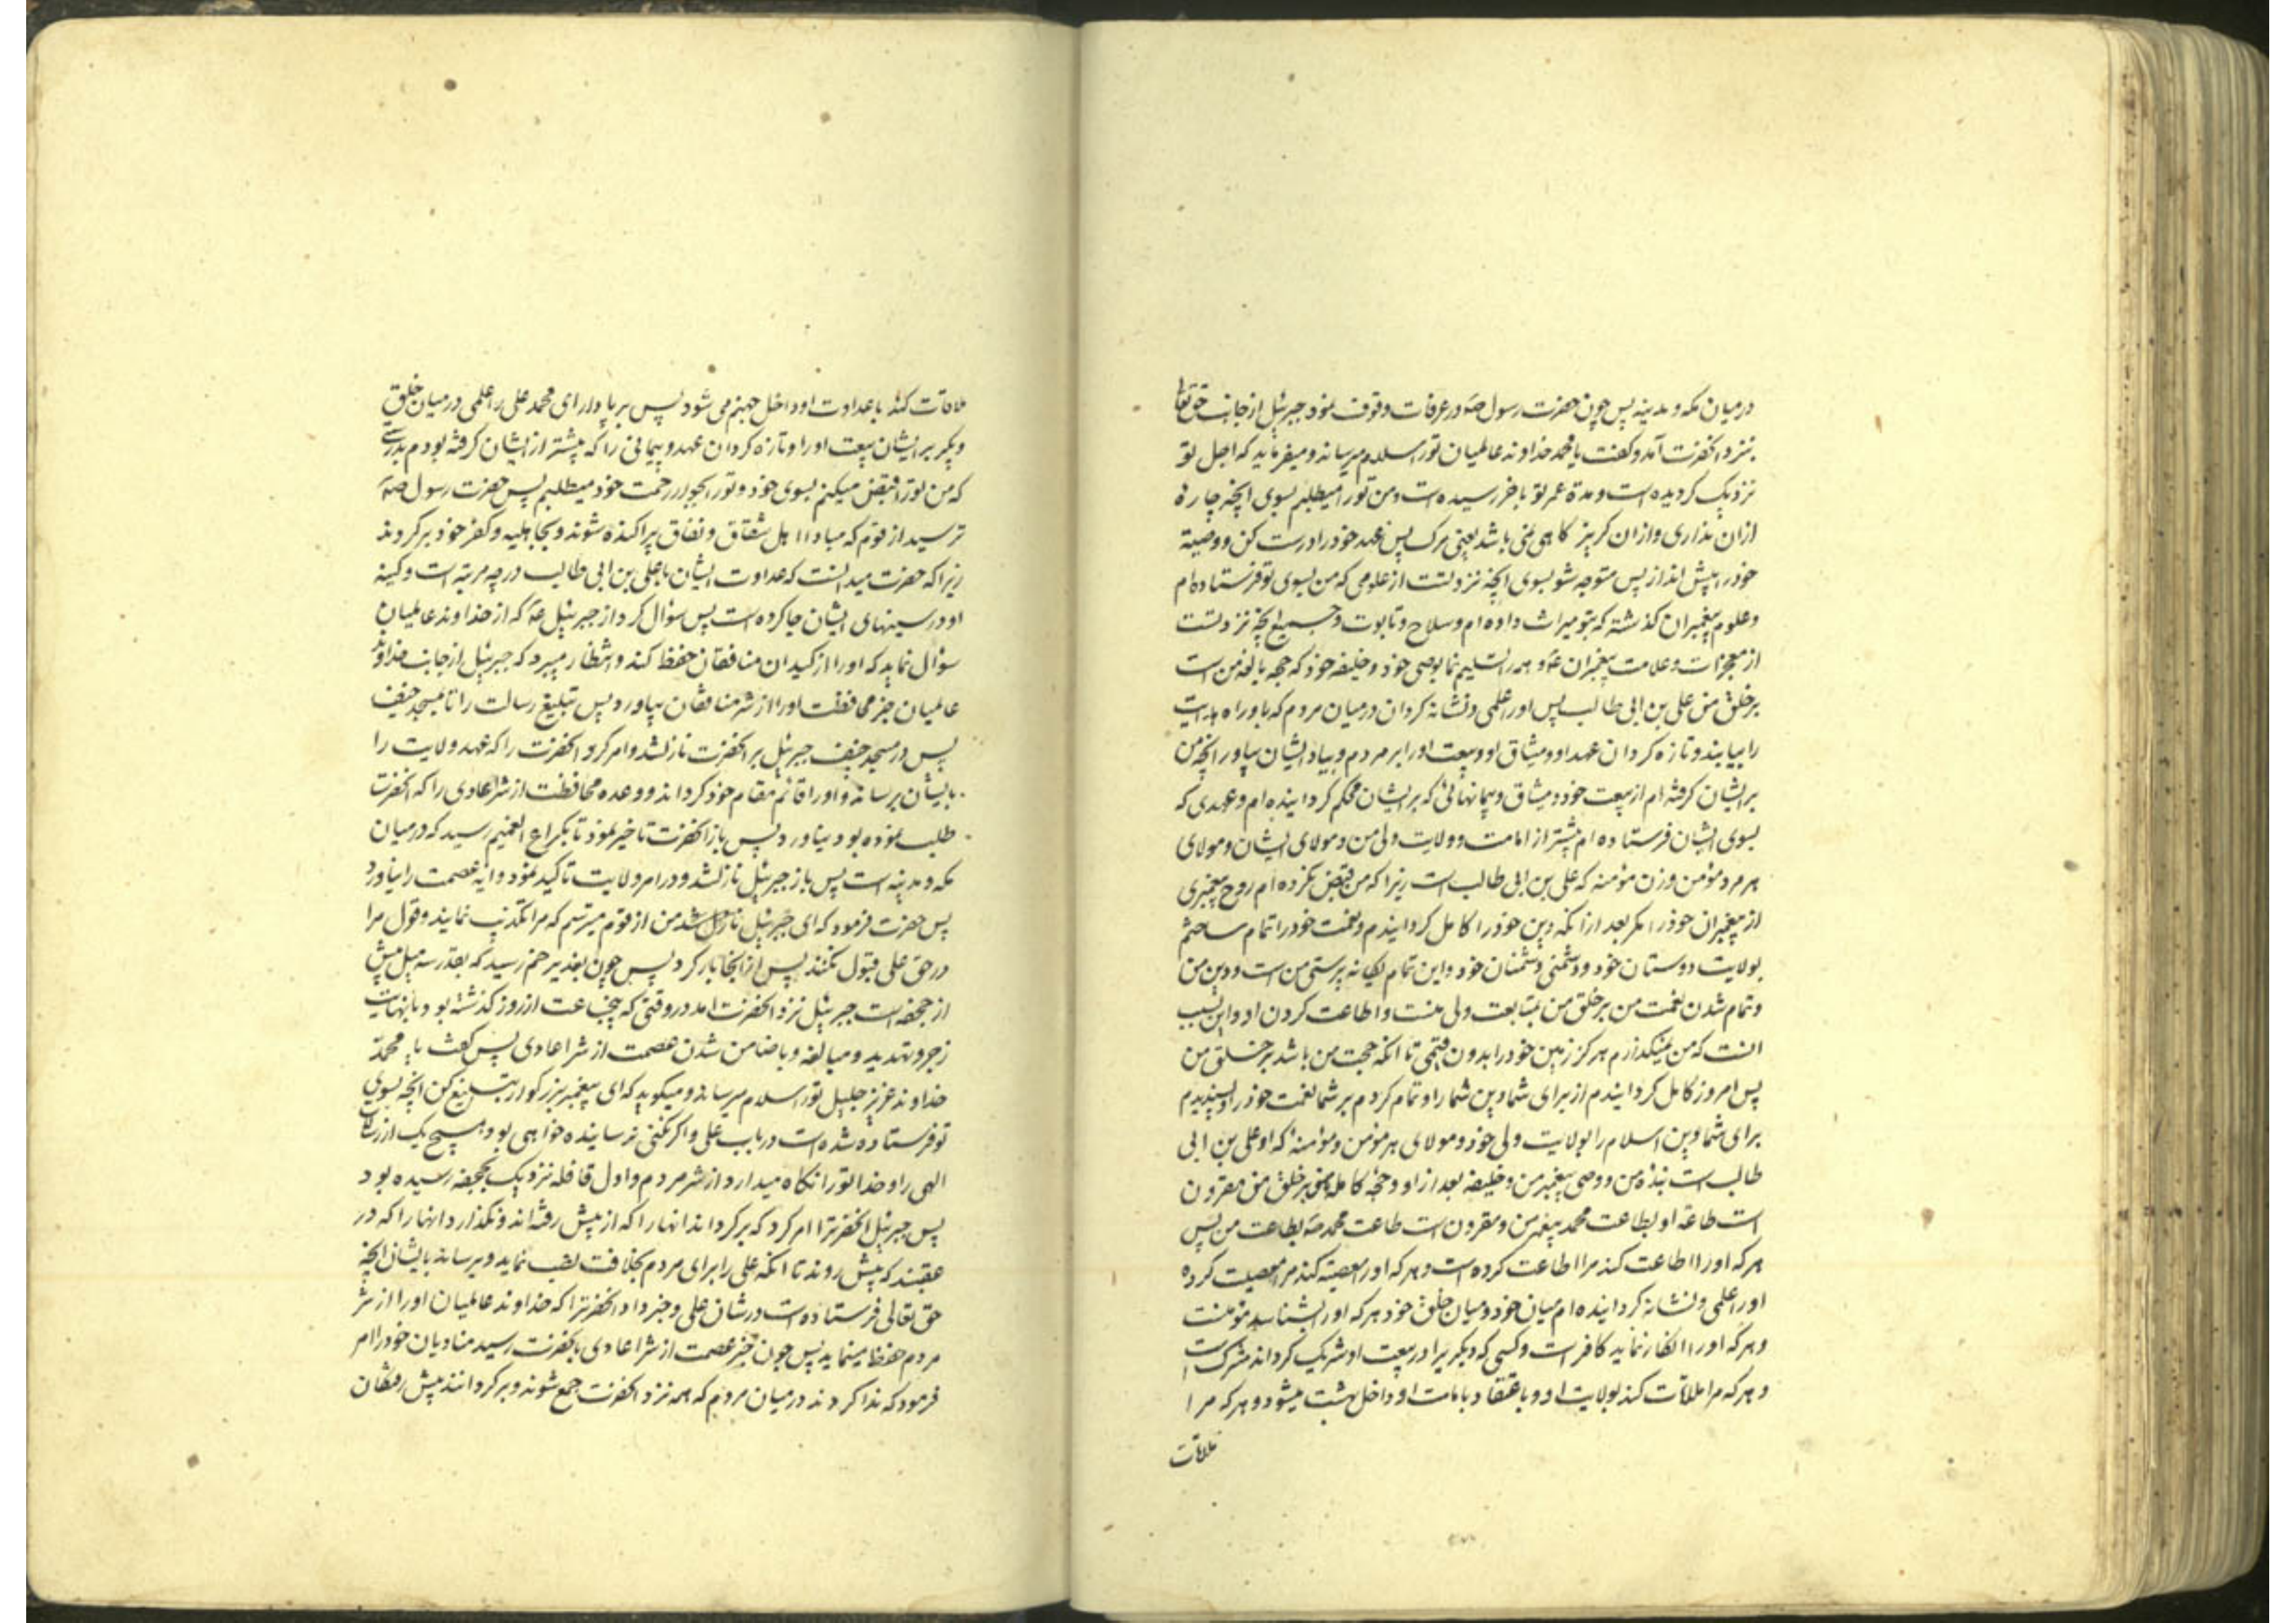 درمیان مکه و مدینه پس چون حضرت رسول صه در عرفات وقوف نمود جبرئیل از جانب حق تعالی
نزد انحضرت آمد و کفت یا محمد خداوند عالمیان تورا سلام میرساند و میفرماید که اجل تو
نزدیک کردیده است و مدة عمر تو باخر رسیده است و من تورا میطلبم بسوی انچه چاره
ازان نداری و ازان کریز کاهی نمی باشد یعنی مرک پس عهد خود را درست کن و وصیة
خود را پیش انداز پس متوجه شو بسوی انچه نزد تست از علومی که من بسوی تو فرستاده ام
و علوم پیغمبران کذشته که بتو میراث داده ام و سلاح و تابوت و جمیع انچه نزد تست
از معجزات و علامت پیغمبران عه و همه را تسلیم نما بوصی خود و خلیفه خود که حجه بالغه من است
بر خلق من علی بن ابی طالب پس او را علمی و نشانه کردان درمیان مردم که باو راه هدایت
را بیابند و تازه کردان عهد او و میثاق او و بیعت او را بر مردم و بیاد ایشان بیاور انچه من
بر ایشان کرفته ام از بیعت خود و میثاق و پیمانهائی که بر ایشان محکم کردانیده ام و عهدی که
بسوی ایشان فرستاده ام پیشتر از امامت و ولایت ولی من و مولای ایشان و مولای
هر مرد مؤمن و زن مؤمنه که علی بن ابی طالب است زیرا که من قبض نکرده ام روح پیغمبری
از پیغمبران خود را مکر بعد ازانکه دین خود را کامل کردانیدم و نعمت خود را تمام ساختم
بولایت دوستان خود و دشمنی دشمنان خود و این تمام یکانه پرستی من است و دین من
و تمام شدن نعمت من بر خلق من بمتابعت ولی منست و اطاعت کردن او و این بسبب
انست که من نمیکذارم هرکز زمین خود را بدون قیمی تا انکه حجت من باشد بر خلق من
پس امروز کامل کردانیدم از برای شما دین شما را و تمام کردم بر شما نعمت خود را و پسندیدم
برای شما دین اسلام را بولایت ولی خود و مولای هر مؤمن و مؤمنه که او علی بن ابی
طالب است بنده من و وصی پیغمبر من و خلیفه بعد از او و حجه کامله من بر خلق من مقرون
است طاعة او بطاعت محمد پیغمبر من و مقرون است طاعت محمد صه بطاعت من پس
هر که او را اطاعت کند مرا اطاعت کرده است و هر که او را معصیة کند مرا معصیت کرده
او را علمی و نشانه کردانیده ام میان خود و میان خلق خود هر که او را بشناسد مؤمنست
و هر که او را انکار نماید کافر است و کسی که دیکریرا در بیعت او شریک کرداند مشرک است
و هر که مرا ملاقات کند بولایت او و باعتقاد بامامت او داخل بهشت میشود و هر که مرا
ملاقات
ملاقات کند با عداوت او داخل جهنم می شود پس بر پا دار ای محمد علی را علمی درمیان خلق
و بکیر بر ایشان بیعت او را و تازه کردان عهد و پیمانی را که پیشتر از ایشان کرفته بودم بدرستی
که من تورا قبض میکنم بسوی خود و تورا بجوار رحمت خود میطلبم پس حضرت رسول صه
ترسید از قوم که مبادا اهل شقاق و نفاق پراکنده شوند و بجاهلیه و کفر خود برکردند
زیرا که حضرت میدانست که عداوت ایشان با علی بن ابی طالب درچه مرتبه است و کینه
او در سینهای ایشان جا کرده است پس سؤال کرد از جبرئیل عه که از خداوند عالمیان
سؤال نماید که او را از کید ان منافقان حفظ کند و انتظار میبرد که جبرئیل از جانب خداوند
عالمیان خبر محافظت او را از شر منافقان بیاورد پس تبلیغ رسالت را تا بمسجد خیف
پس در مسجد خیف جبرئیل بر انحضرت نازلشد و امر کرد انحضرت را که عهد ولایت را
بایشان برساند و او را قائم مقام خود کرداند و وعده محافظت از شر اعادی را که انحضرت
طلب نموده بود نیاورد پس باز انحضرت تاخیر نمود تا بکراع الغمیم رسید که درمیان
مکه و مدینه است پس باز جبرئیل نازلشد و در امر ولایت تاکید نمود و ایه عصمت را نیاورد
پس حضرت فرمود که ای جبرئیل نازل شد من از قوم میترسم که مرا تکذیب نمایند و قول مرا
در حق علی قبول نکنند پس از انجا بار کرد پس چون بغدیر خم رسید که بقدر سه میل پیش
از جحفه است جبرئیل نزد انحضرت امد در وقتی که پنجساعت از روز کذشته بود با نهایت
زجر و تهدید و مبالغه و با ضامن شدن عصمت از شر اعادی پس کفت یا محمد
خداوند عزیز جلیل تورا سلام میرساند و میکوید که ای پیغمبر بزرکوار تبلیغ کن انچه بسوی
تو فرستاده شده است در باب علی و اکر نکنی نرساینده خواهی بود هیچ یک از رسالات
الهی را و خدا تورا نکاه میدارد از شر مردم و اول قافله نزدیک بجحفه رسیده بود
پس جبرئیل انحضرترا امر کرد که برکرداند انها را که از پیش رفته اند و نکذارد انها را که در
عقبند که پیش روند تا انکه علی را برای مردم بخلافت نصب نماید و برساند بایشان انچه
حق تعالی فرستاده است در شان علی و خبر داد انحضرترا که خداوند عالمیان او را از شر
مردم حفظ مینماید پس چون خبر عصمت از شر اعادی بانحضرت رسید منادیان خود را امر
فرمود که ندا کردند درمیان مردم که همه نزد انحضرت جمع شوند و برکردانند پیش رفتکان